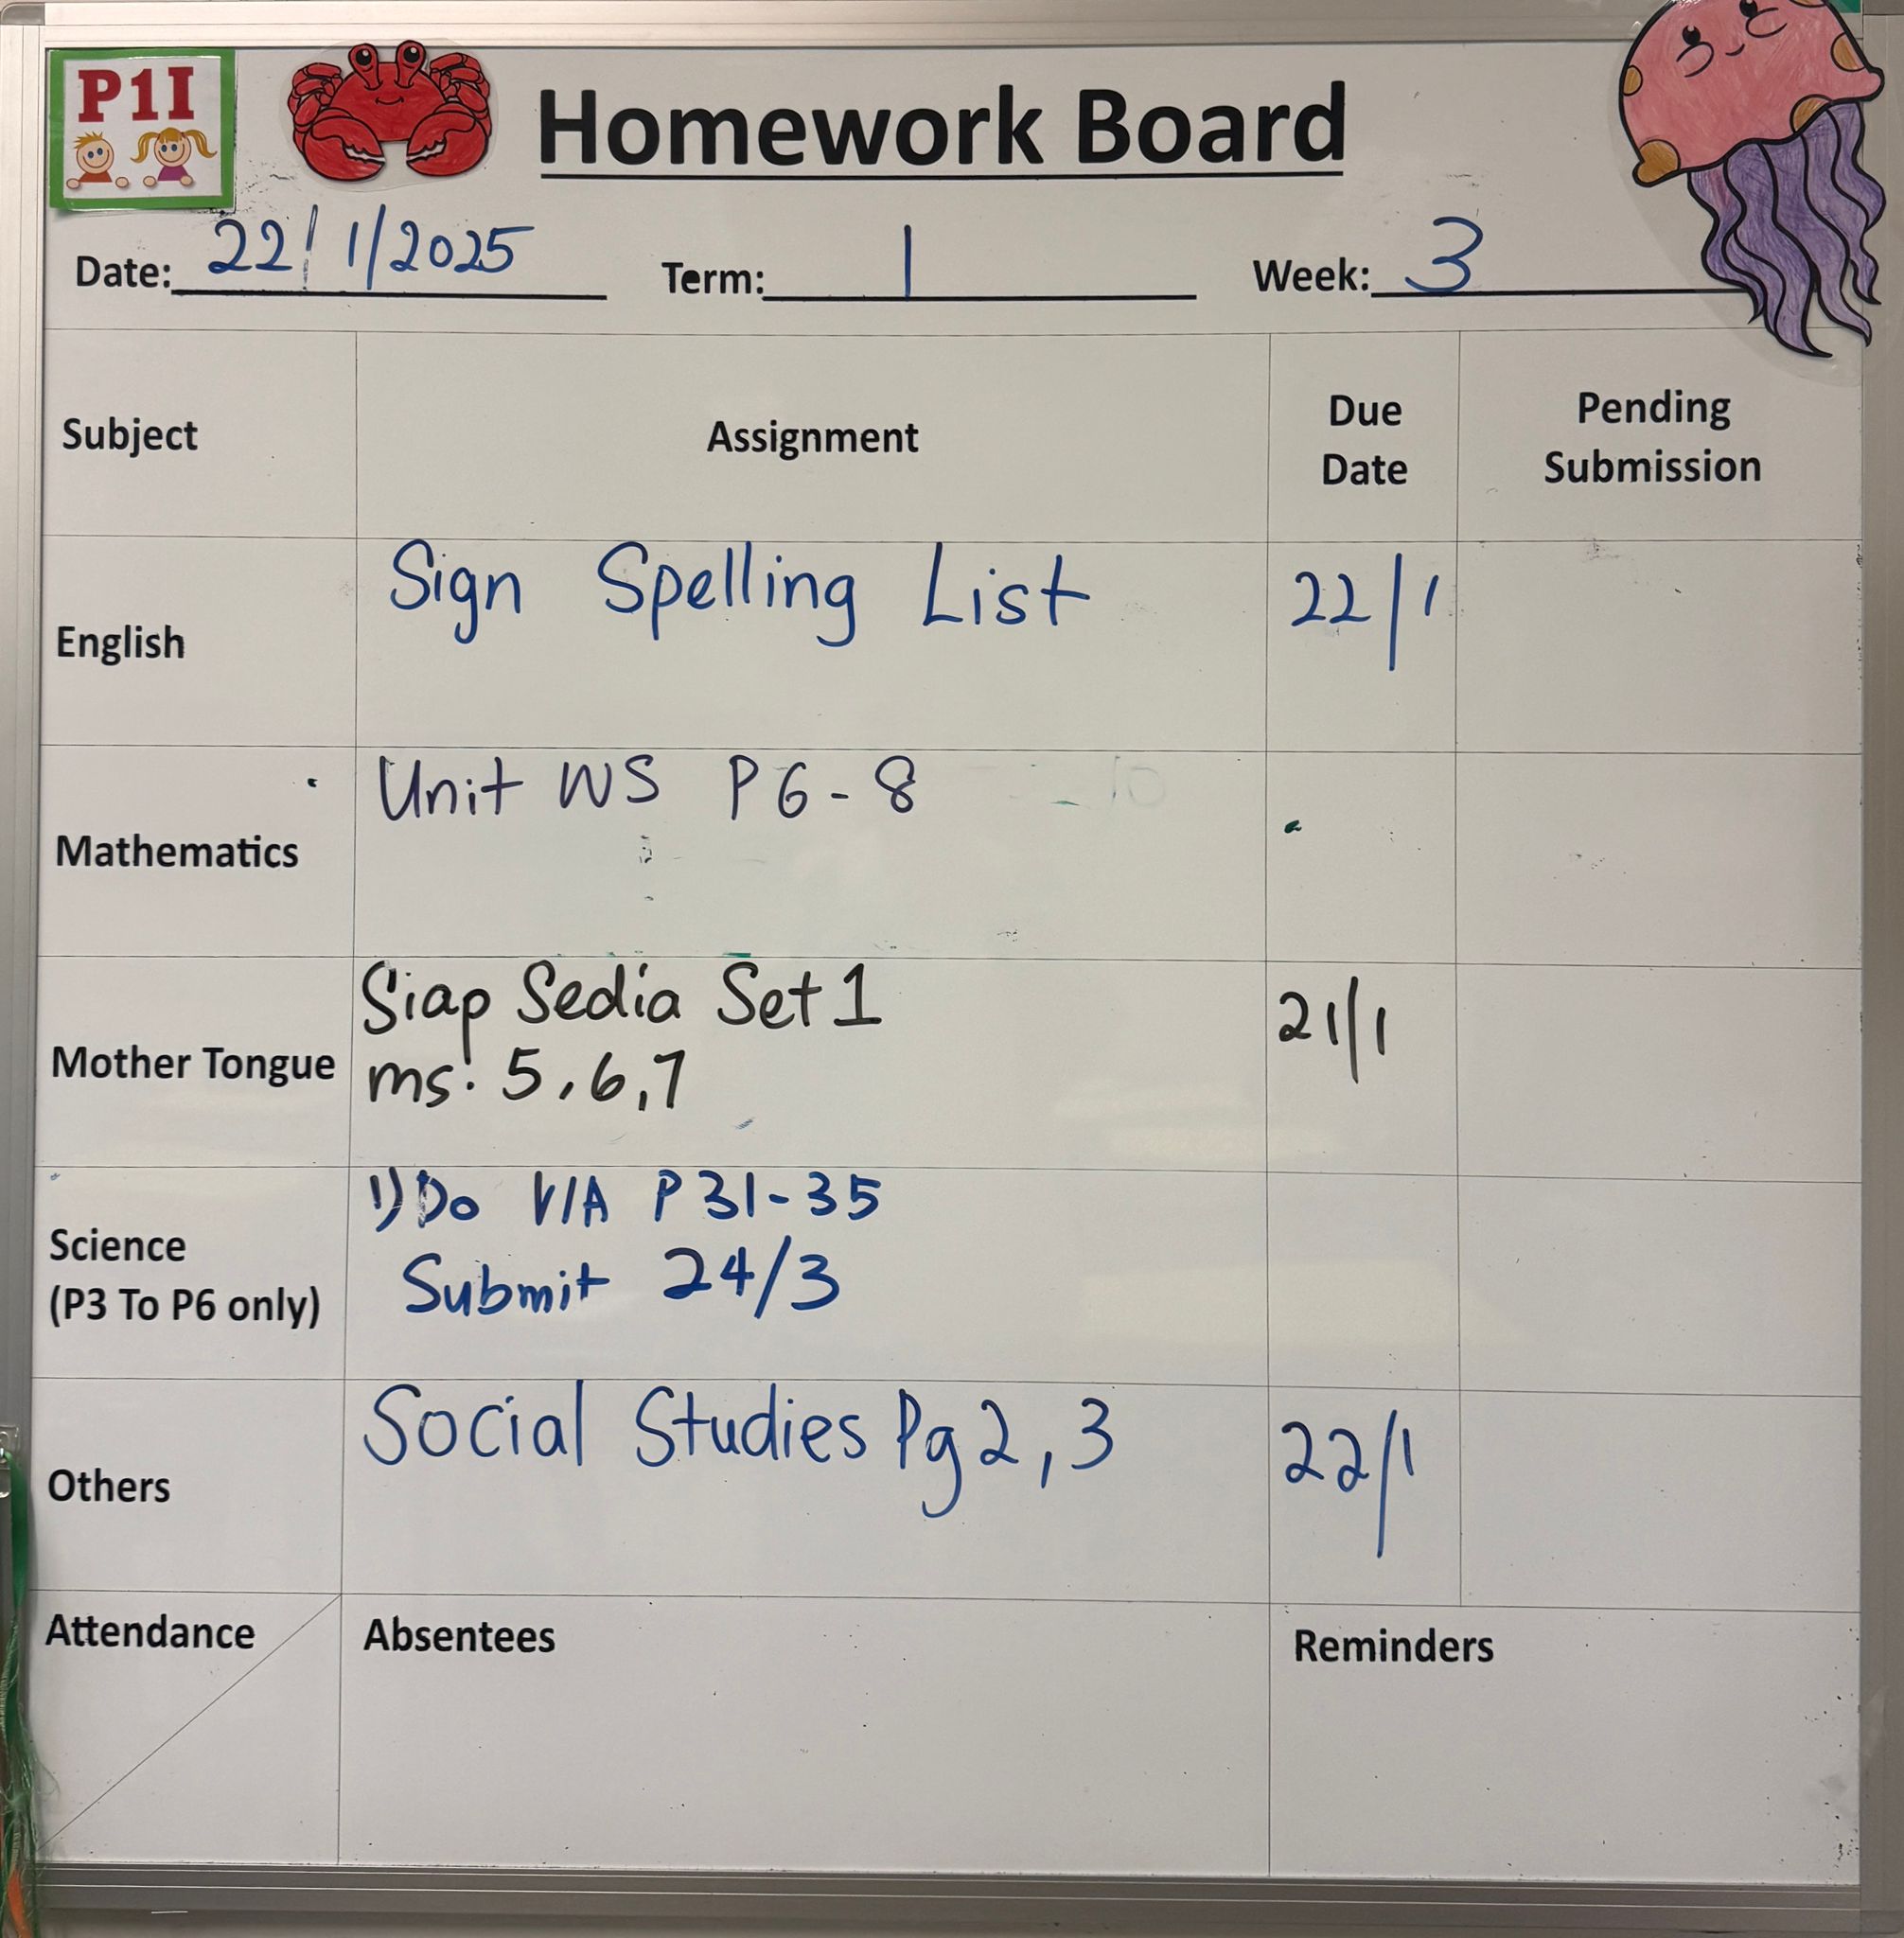 P1I
Homework Board
Date: 22/1/2025 Term: 1 Week: 3
Subject Assignment Due Date Pending Submission
English Sign Spelling List 22/1
Mathematics Unit WS P6-8
Mother Tongue Siap Sedia Set 1 21/1
ms: 5, 6, 7
Science (P3 To P6 only) 1) Do V/A P31-35
Submit 24/3
Others Social Studies Pg 2, 3 22/1
Attendance Absentees Reminders